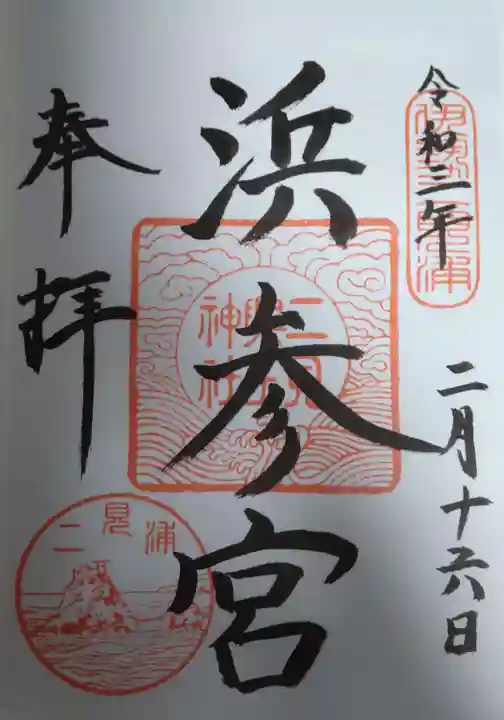 令和三年
二月十六日
伊勢二見浦
浜参宮
二見
興玉
神社
奉拝
二見浦